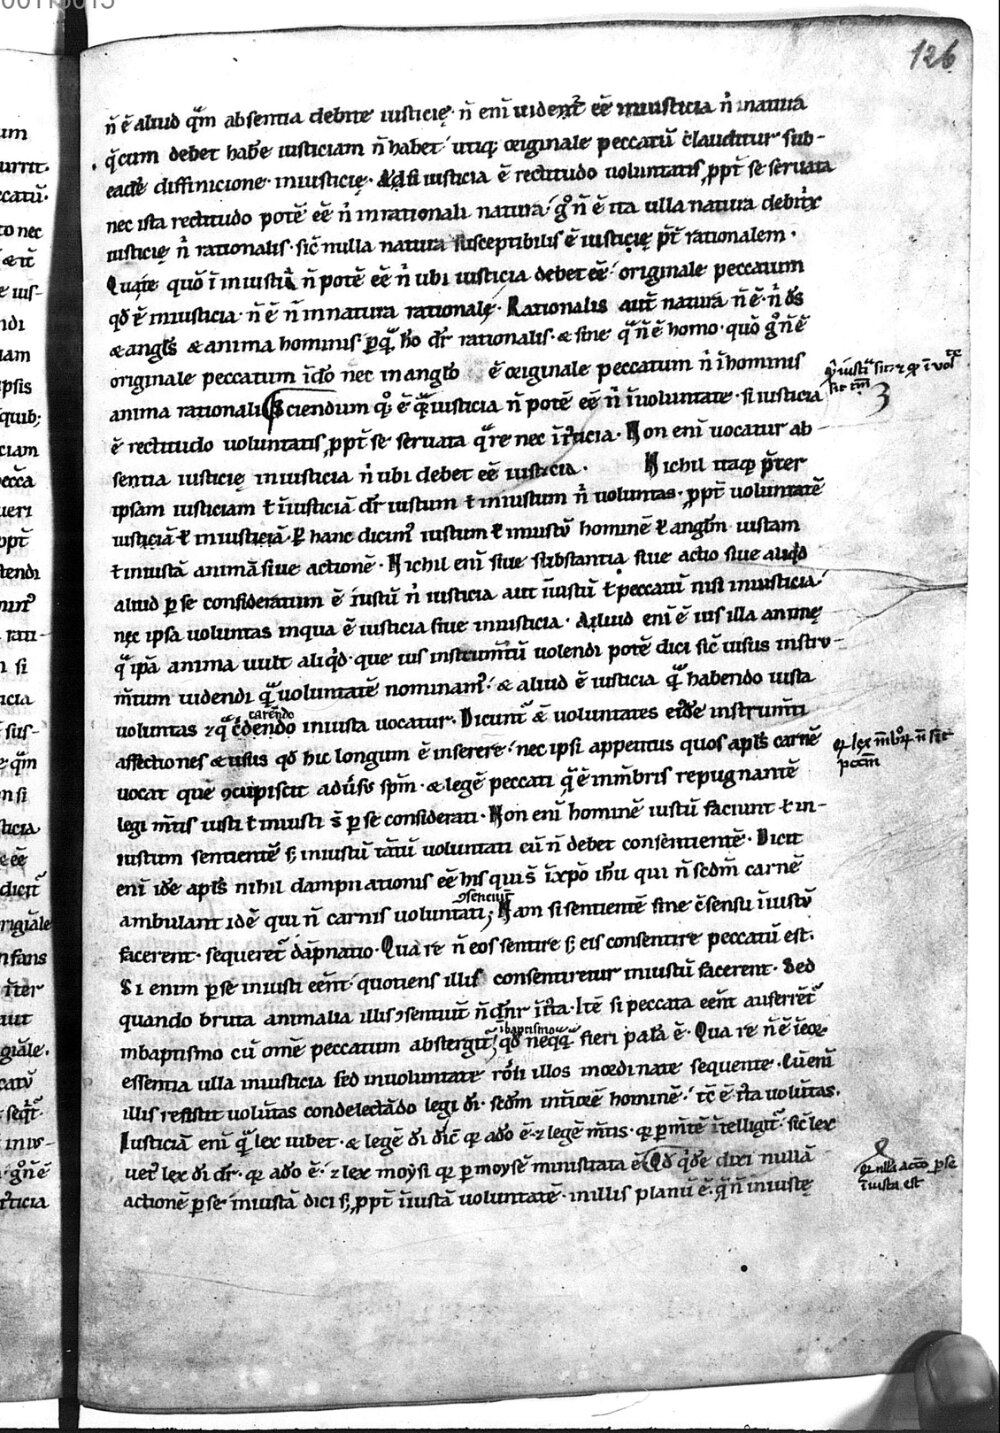 126
n̄ ē aliud qͣm absentia debite iusticię · n̄ eni͂ uidetʳ eē iniusticia nͥ innatura
q̄ cum debet habēe iusticiam n̄ habet · utiq; originale peccatū clauditur sub-
eadē diffinicione · iniusticię · Ad si iusticia ē rectitudo uoluntatis, ppt̄ se seruata
nec ista rectitudo potē eē nͥ inrationali natura · gͦ n̄ ē ita ulla natura debitͥx
iusticię nͥ rationalis · sic̄ nulla natura susceptibilis ē iusticię pt̄ rationalem ·
Quare quō i͂ iniusticia n̄ potē eē nͥ ubi iusticia debet eē · originale peccatum
qđ ē iniusticia · n̄ ē nͥ innatura rationale · Rationalis aut̄ natura n̄ ē · nͥ d̄s
& angl̄s & anima hominis p qͣ hō dr̄ rationalis · & sine qͣ n̄ ē homo · quō gͦ n̄ ē
originale peccatum i͂ dō nec in anglō ē originale peccatum nͥ i͂ hominis
anima rationali Sciendum qͦ; ē qͣ iusticia n̄ potē eē nͥ i͂ uoluntate · si iusticia
ē rectitudo uoluntatis, ppt̄ se seruata qͣre nec iͥticia · Non eni͂ uocatur ab-
sentia iusticię iniusticia nͥ ubi debet eē iusticia · Nichil itaq; pt̄er
ipsam iusticiam ł i͂iusticiā dr̄ iustum ł iniustum nͥ uoluntas · ppt̄ uoluntatē
iusticiā ł iniusticiā · P hanc dicimʳ iustum ł iniustū hominē ł angl̄m · iustam
ł iniustā animā siue actionē · Nichil eni͂ siue substantia siue actio siue aliqͥd
aliud p se consideratum ē iustū nͥ iusticia aut i͂iustū ł peccatū nisi iniusticia ·
nec ipsa uoluntas inqua ē iusticia siue iniusticia · Aliud eni͂ ē uis illa animę
qͣ ip̄a anima uult aliqͥd · que uis instrum̄tū uolendi potē dici sic̄ uisus instru-
m̄tum uidendi qͣ uoluntatē nominamʳ · & aliud ē iusticia qͣ habendo iusta
carendo
uoluntas ⁊ qͣ cͣdendo iniusta uocatur · Dicuntʳ & uoluntates eiʳde instrum̄ti
affectiones & usus qđ hic longum ē inserere · nec ipsi appetitus quos apl̄s carnē
uocat que ꝯcupiscit aduͥsus spm̄ · & legē peccati qͣ ē i͂m̄bris repugnantē
legi m̄tis iusti ł iniusti s̄ p se considerati · Non eni͂ hominē iustū faciunt ł in-
iustum sentientē s; iniustū tātū uoluntati cū n̄ debet consentientē · Dicit
eni͂ idē apl̄s nihil dampnationis eē his qui s̄ i͂ xpō ih̄u qui n̄ scdm̄ carnē
ꝯsenciūt
ambulant idē qui n̄ carnis uoluntati; Nam si sentientē sine cͣsensu i͂iustū
facerent · sequeretʳ dāpnatio · Qua re n̄ eos sentire s; eis consentire peccatū est ·
Si enim p se iniusti eēnt · quotiens illis consentiretur iniustū facerent · Sed
quando bruta animalia illis ꝯsentiūt n̄ dn̄r iͥti · Itē si peccata eēnt auferretʳ
i͂baptismo
inbaptismo cū om̄e peccatum abstergitʳ; qđ neqͣq̄ fieri palā ē · Qua re n̄ ē i͂ eorͧ
essentia ulla iniusticia sed inuoluntate rōli illos inordinate sequente · Cū eni͂
illis resistit uolūtas condelectādo legi dī · scdm̄ int̄iorē hominē · tc̄ ē iͥta volūtas ·
Iusticiā eni͂ qͣ lex iubet · & legē dī dic̄ qr a dō ē · ⁊ legē m̄tis · qr p m̄tē i͂telligitʳ · sic̄ lex
uetʳ lex dī dr̄ · qr a dō ē · ⁊ lex moẏsi qr p moẏsē ministrata ē Qđ qͥdē dixi nullā
actionē p se iniustā dici s;, ppt̄ i͂iustā uoluntatē · in illis planū ē · q̄ n̄ iniuste
qr lex m̄boꝝ n̄ sit
pccm̄
qr nlla actō p se
i͂iusta est